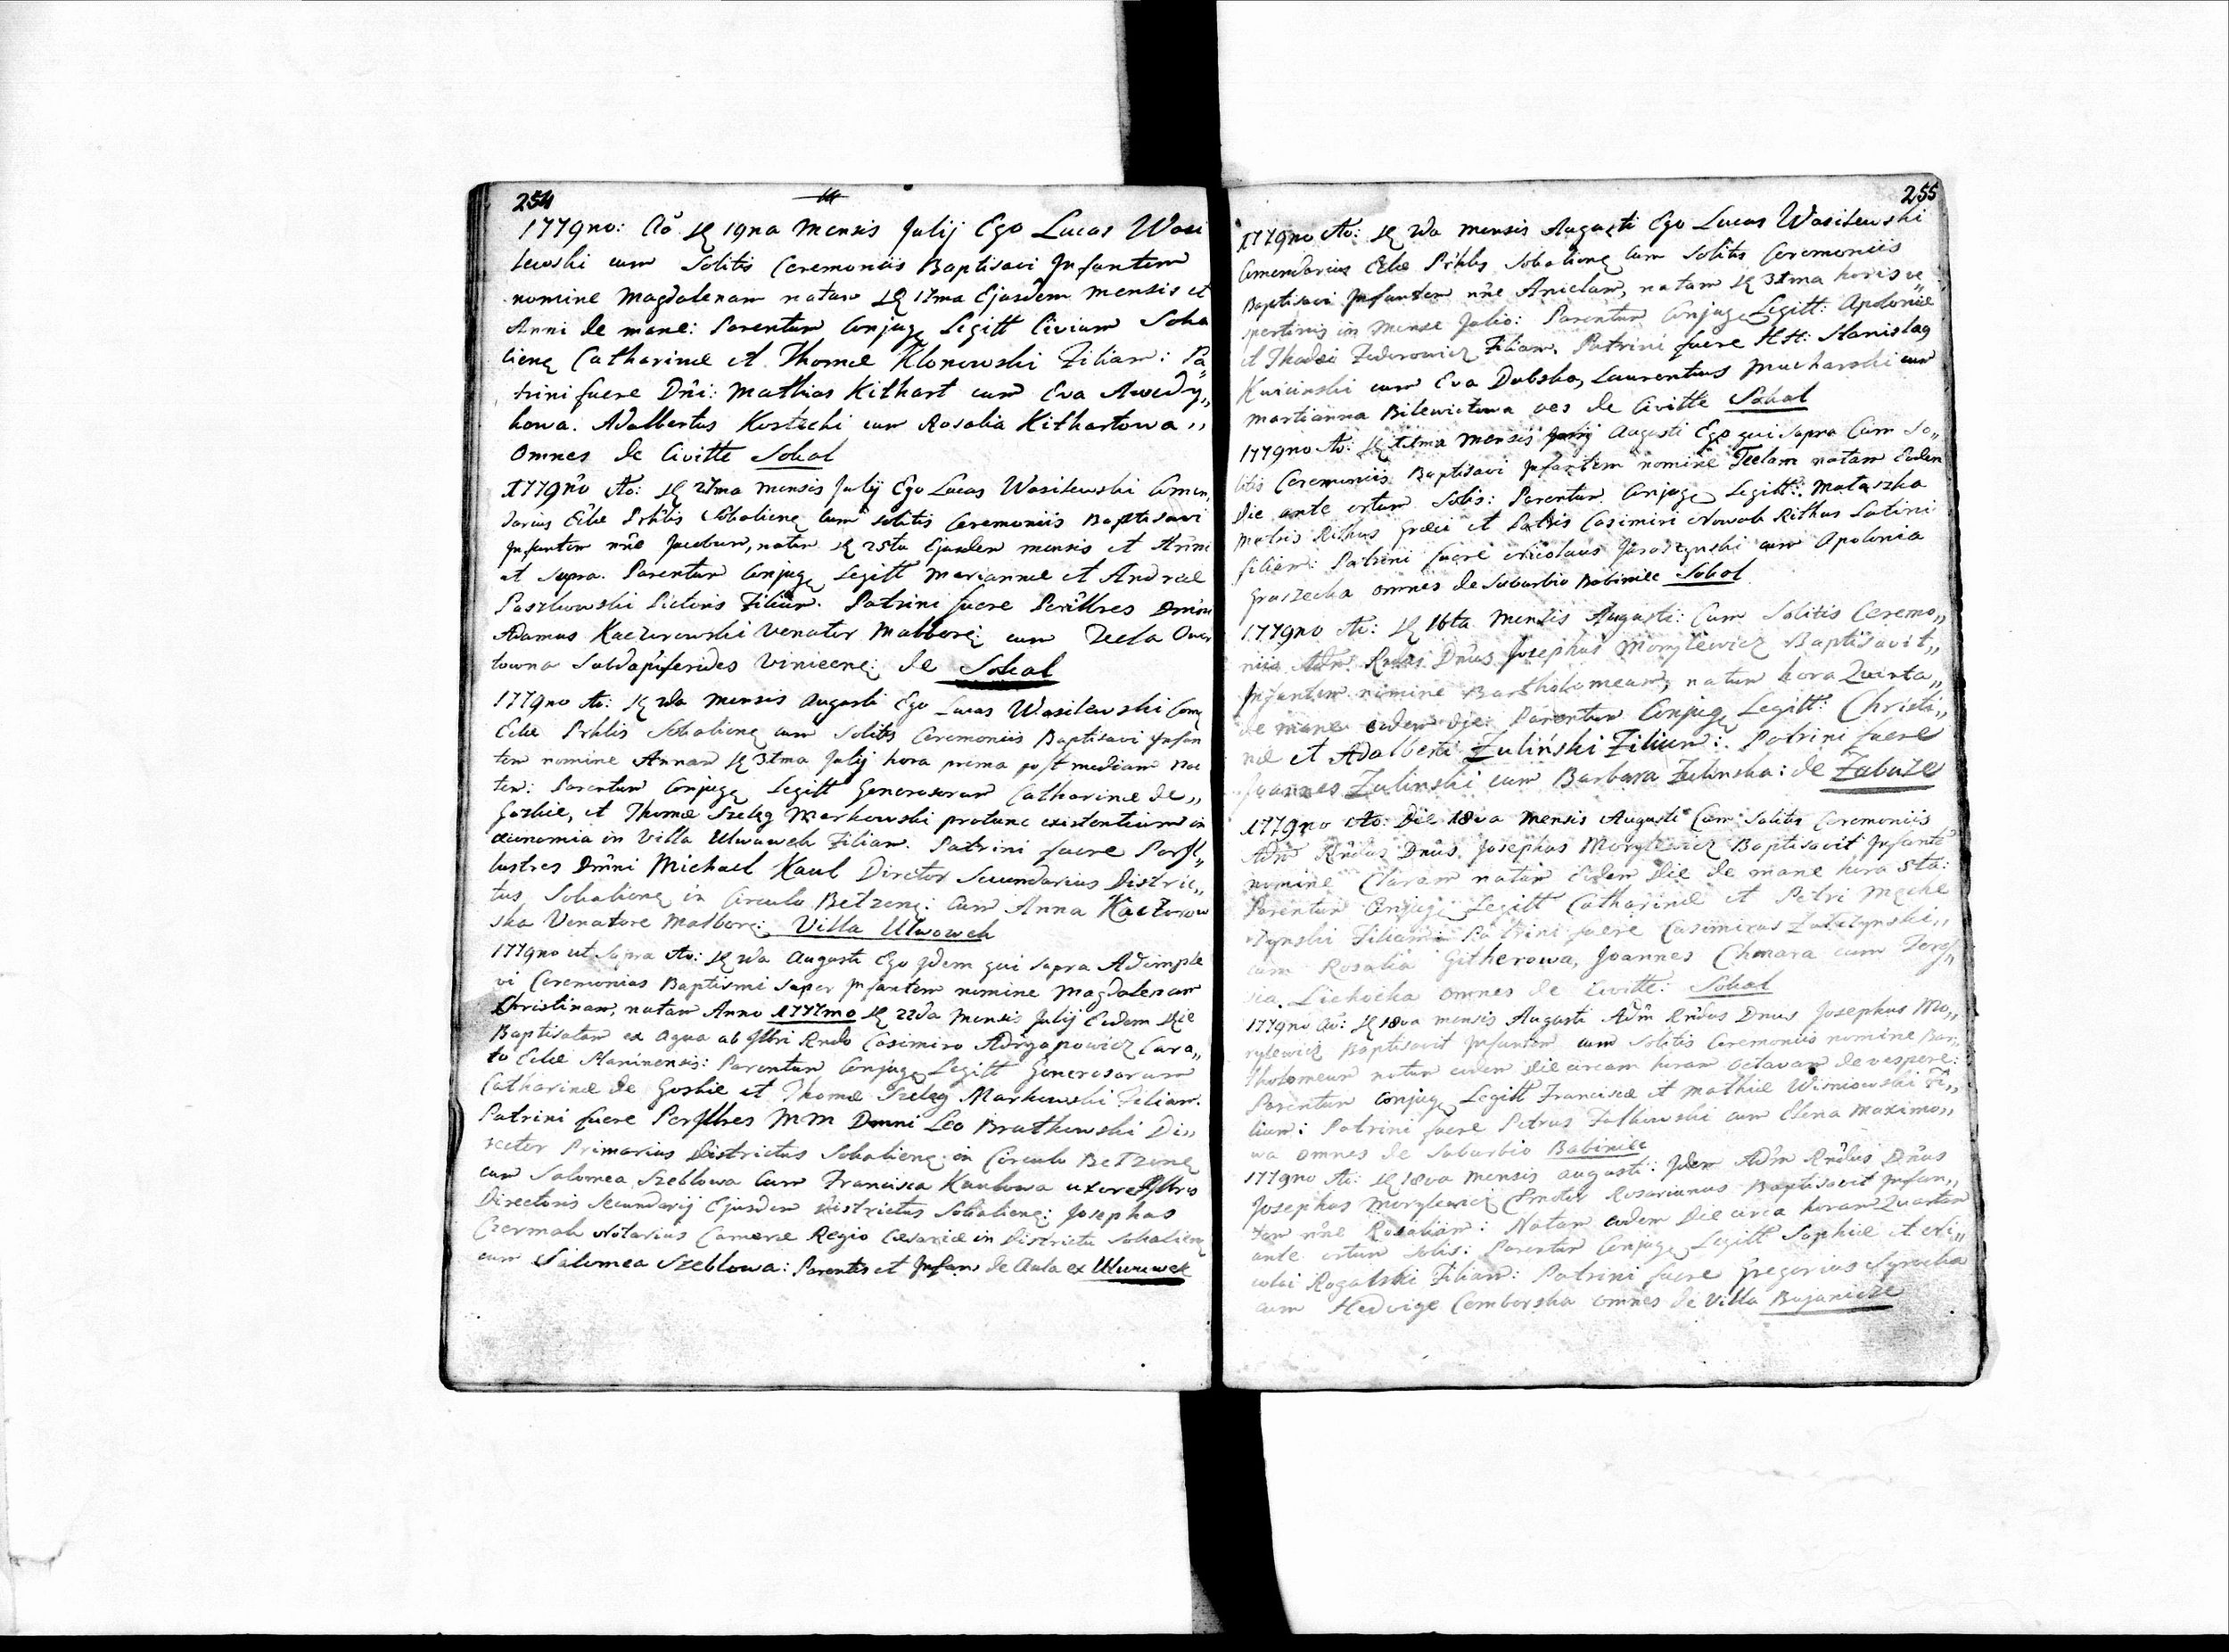 254
1779no: Aõ d 19na Mensis Julij Ego Lucas Wasi
lewski cum Solitis Ceremoniis Baptisavi Jnfantem
nomine Magdalenam natam d 17ma Ejusdem Mensis et
Anni de mane: Parentum Conjug Legitt Civium Soka
liens Catharinæ et Thomæ Klonowski Filiam: Pa„
trini fuere Dñi: Mathias Kithart cum Eva
howa. Adalbertus Kostecki cum Rosalia Kithartowa„
Omnes de Civitte Sokal
1779no Ao: d 27ma Mensis Julij Ego Lucas Wasilewski Comen„
darius Eccłæ Prhlis Sokaliens cum solitis Ceremoniis Baptisavi
Jnfantem nñe Jacobum, natum d 25ta Ejusdem mensis et Anni
ut supra. Parentum Conjug Legitt Mariannæ et Andreæ
Paszkowski Pictoris Filium. Patrini fuere Perillres Dmini
Adamus Kaczorowski Venator Malbors: cum Tecla
towna Subdapiferides Viniecens: de Sokal
1779no Ao: d 2da Mensis Augusti Ego Lucas Wasilewski Com
Eccłæ Prhlis Sokaliens cum Solitis Ceremoniis Baptisavi Jnfan
tem nomine Annam d 31ma Julij hora prima post mediam noc
tem: Parentum Conjug Legitt Generosorum Catharinæ de„
Gorkie, et Thomæ Szeleg Markowski protunc existentium in
œconomia in Villa Ulwowek Filiam. Patrini fuere Perjl„
lustres Dmni Michael Kaul Director Secundarius Distric„
tus Sokaliens in Circulo Betzens: Cum Anna Kaczorow
ska Venatore Malbors: Villa Ulwowek
1779no ut supra Ao: d 2da Augusti Ego Jdem qui supra Adimple
vi Ceremonias Baptismi super Jnfantem nomine Magdalenam
Christinam, natam Anno 1777mo d 22da Mensis Julij Eodem die
Baptisatam ex aqua ab Jllri Rndo Casimiro Cura„
to Eccłæ Maninensis: Parentum Conjug Legitt Generosorum
Catharinæ de Gorkie et Thomæ Szeleg Markowski Filiam.
Patrini fuere Perjllres MM Domni Leo Brutkowski Di„
rector Primarius Districtus Sokaliens: in Circulo Betzens
cum Salomea Szeblowa cum Francisca Kaulowa uxore Jllris
Directoris Secundarij Ejusdem Districtus Sokaliens: Josephus
Czermak Notarius Cameræ Regio Cæsareæ in Districtu Sokaliens
cum Salomea Szeblowa: Parentes et Jnfans de Aula ex Ulwowek
255
1779no Ao: d 2da Mensis Augusti Ego Lucas Wasilewski
Comendarius Eccłæ Prhlis Sokaliens cum Solitis Ceremoniis
Baptisavi Jnfantem nñe Anielam, natam d 31ma horis ve„
spertinis in Mense Julio: Parentum Conjug Legitt: Apoloniæ
et Thadei Federowicz Filiam. Patrini fuere HH: Stanislag
Kwicinski cum Eva Dubska, Laurentius Mucharski cum
Martianna Bilewiczowa oes de Civitte Sokal
1779no Ao: d Mensis Augusti Ego qui supra Cum So„
litis Ceremoniis Baptisavi Jnfantem nomine Teclam natam Eadem
Die ante ortum Solis: Parentum Conjug Legitt: Mataszka
Matris Rithus Græci et Patris Casimiri Nowak Rithus Latini
filiam: Patrini fuere Nicolaus Jaroszynski cum Apolonia
Gruszecka omnes de Suburbio Babiniec Sokal
1779no Ao: d 16ta Mensis Augusti: Cum Solitis Ceremo„
niis Adm Rndus Dñus Josephus Morylewicz Baptisavit„
Jnfantem nomine Bartholomeum, natum hora Quinta„
de mane eadem Die: Parentum Conjug Legitt: Christi„
næ et Adalberti Zuliński Filium: Patrini fuere
Joannes Zulinski cum Barbara Zulinska: de Zabuze
1779no Ao: Die 18va Mensis Augusti Cum Solitis Ceremoniis
Adm Rndus Dnus. Josephus Morylewicz Baptisavit Jnfante
nomine Claram natam Eadem Die de mane hora 5ta:
Parentum Conjug Legitt Catharinæ et Petri
Filiam: Patrini fuere Casimirus
cum Rosalia Githerowa, Joannes Chmara cum Tere„
sia Lichocka omnes de Civitte: Sokal
1779no Ao: d 18va mensis Augusti Adm Rndus Dnus Josephus Mo„
rylewicz Baptisavit Jnfantem cum Solitis Ceremoniis nomine Bar„
tholomeum natum eadem die circam horam octavam de vespere:
Parentum Conjug Legitt Franciscæ et Mathiæ Wisniowski Fi„
lium: Patrini fuere Petrus Falkowski cum Elena Maximo„
wa omnes de Suburbio Babiniec
1779no Ao: d 18va Mensis augusti: Jdem Adm Rndus Dñus
Josephus Morylewicz Pmoter Rosarianus Baptisavit Jnfan„
tem nñe Rosaliam: Natam eadem Die circa horam Quartam
ante ortum solis: Parentum Conjug Legitt Sophiæ et Ni„
colai Rogalski Filiam: Patrini fuere Gregorius Syrocka
cum Hedvige Cemborska omnes de Villa Bojanicze